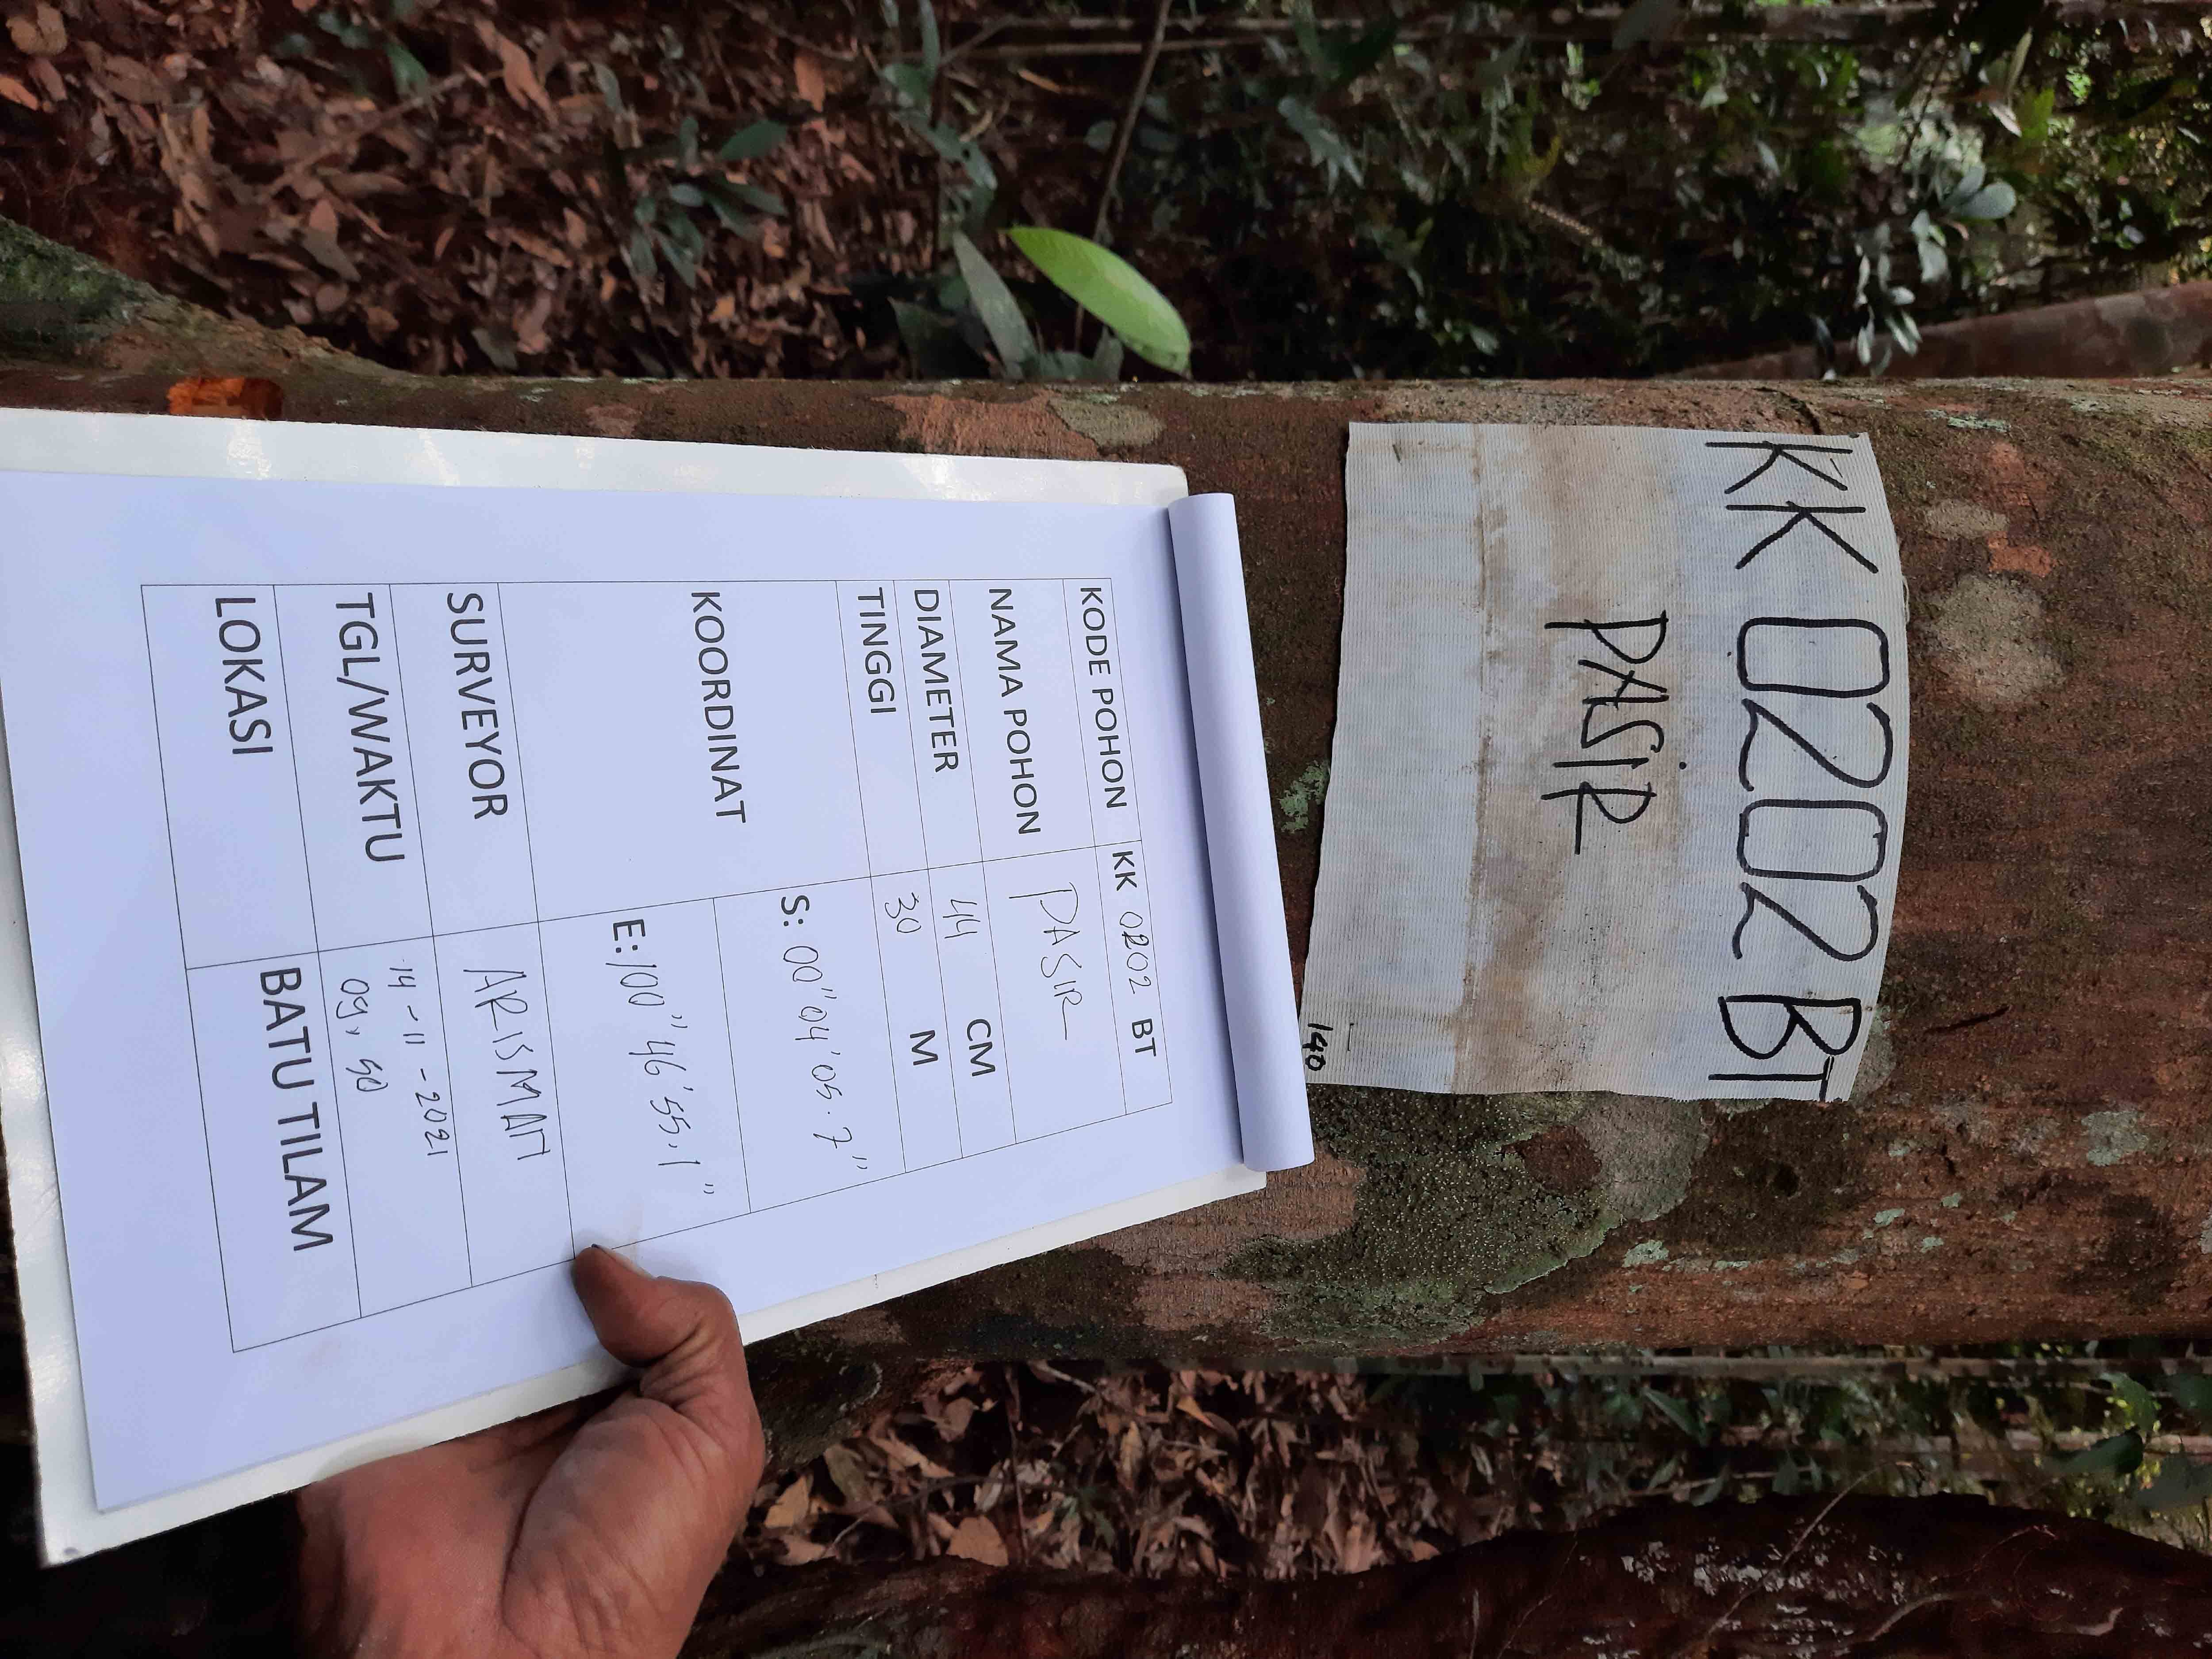 KK 0202 BT
PASIR
140
KODE POHON KK 0202 BT
NAMA POHON PASIR
DIAMETER 44 CM
TINGGI 30 M
KOORDINAT S: 00" 04' 05.7"
E: 100" 46' 55,1"
SURVEYOR ARISMAN
TGL/WAKTU 14-11-2021
09,50
LOKASI BATU TILAM